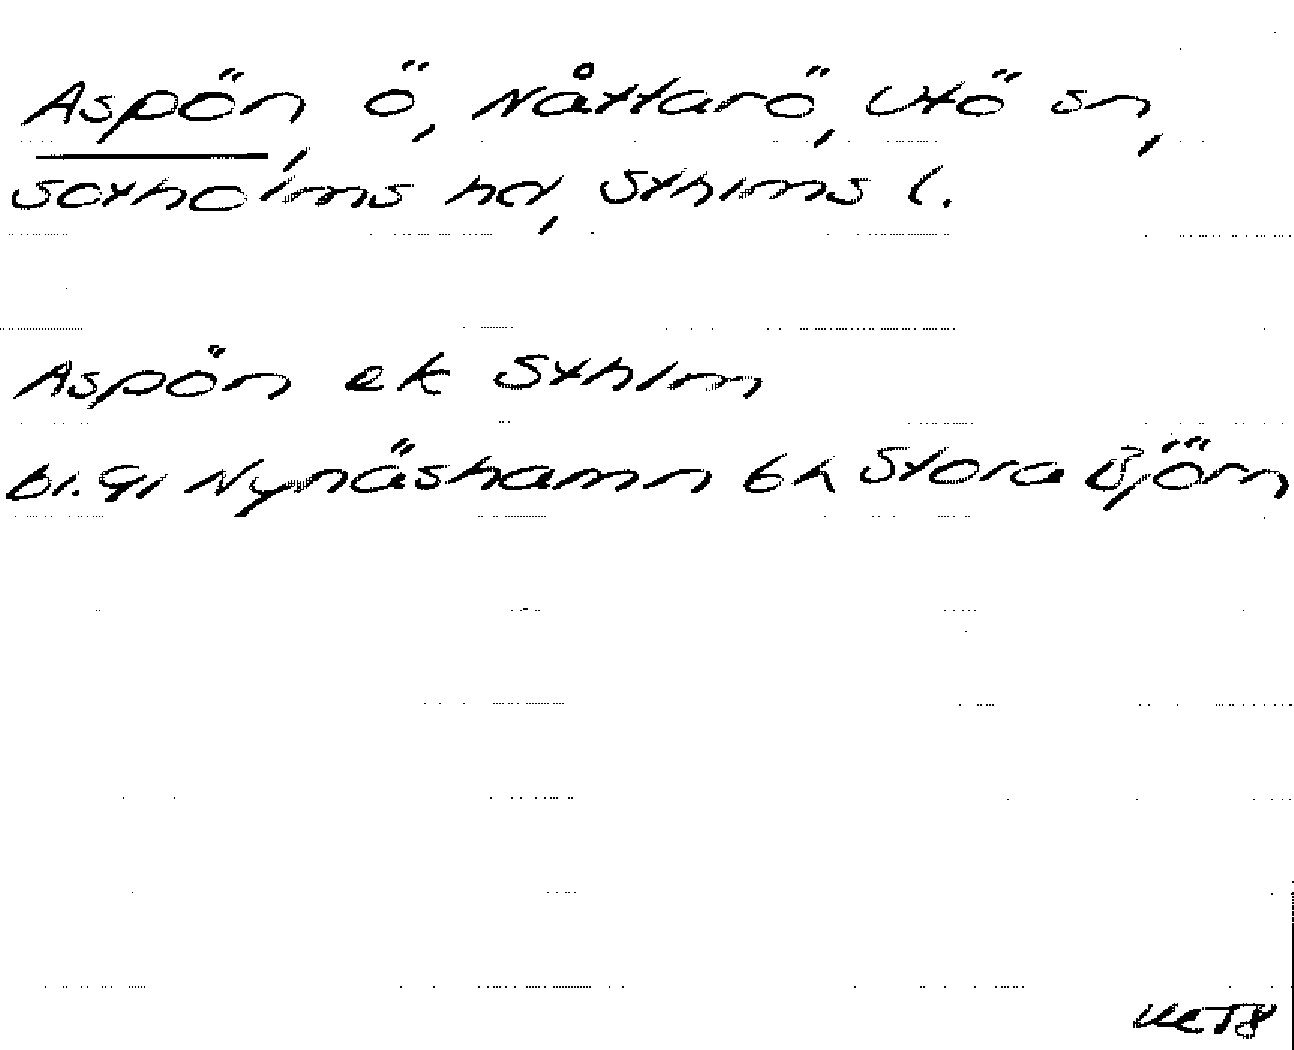 Aspön, ö, Nåttarö, Utö sn,
Sotholms hd, Sthlms l.
Aspön ek Sthlm
bl. 91 Nynäshamn 6 h Stora Björn